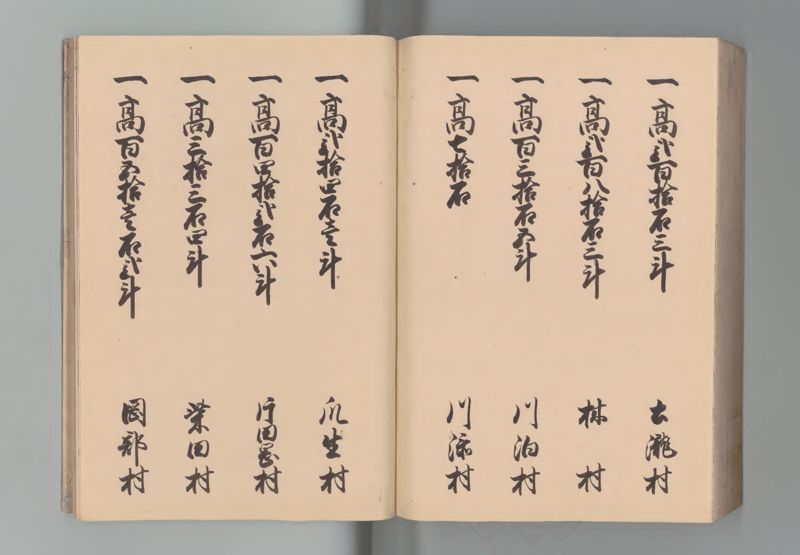 一高弐百拾石三斗 大瀧村
一高弐百八拾石三斗 林村
一高百三拾石五斗 川泊村
一高七拾石 川添村
一高弐拾四石壱斗 爪生村
一高百四拾弐石六斗 片田村
一高三拾三石四斗 柴田村
一高百五拾壱石弐斗 岡部村